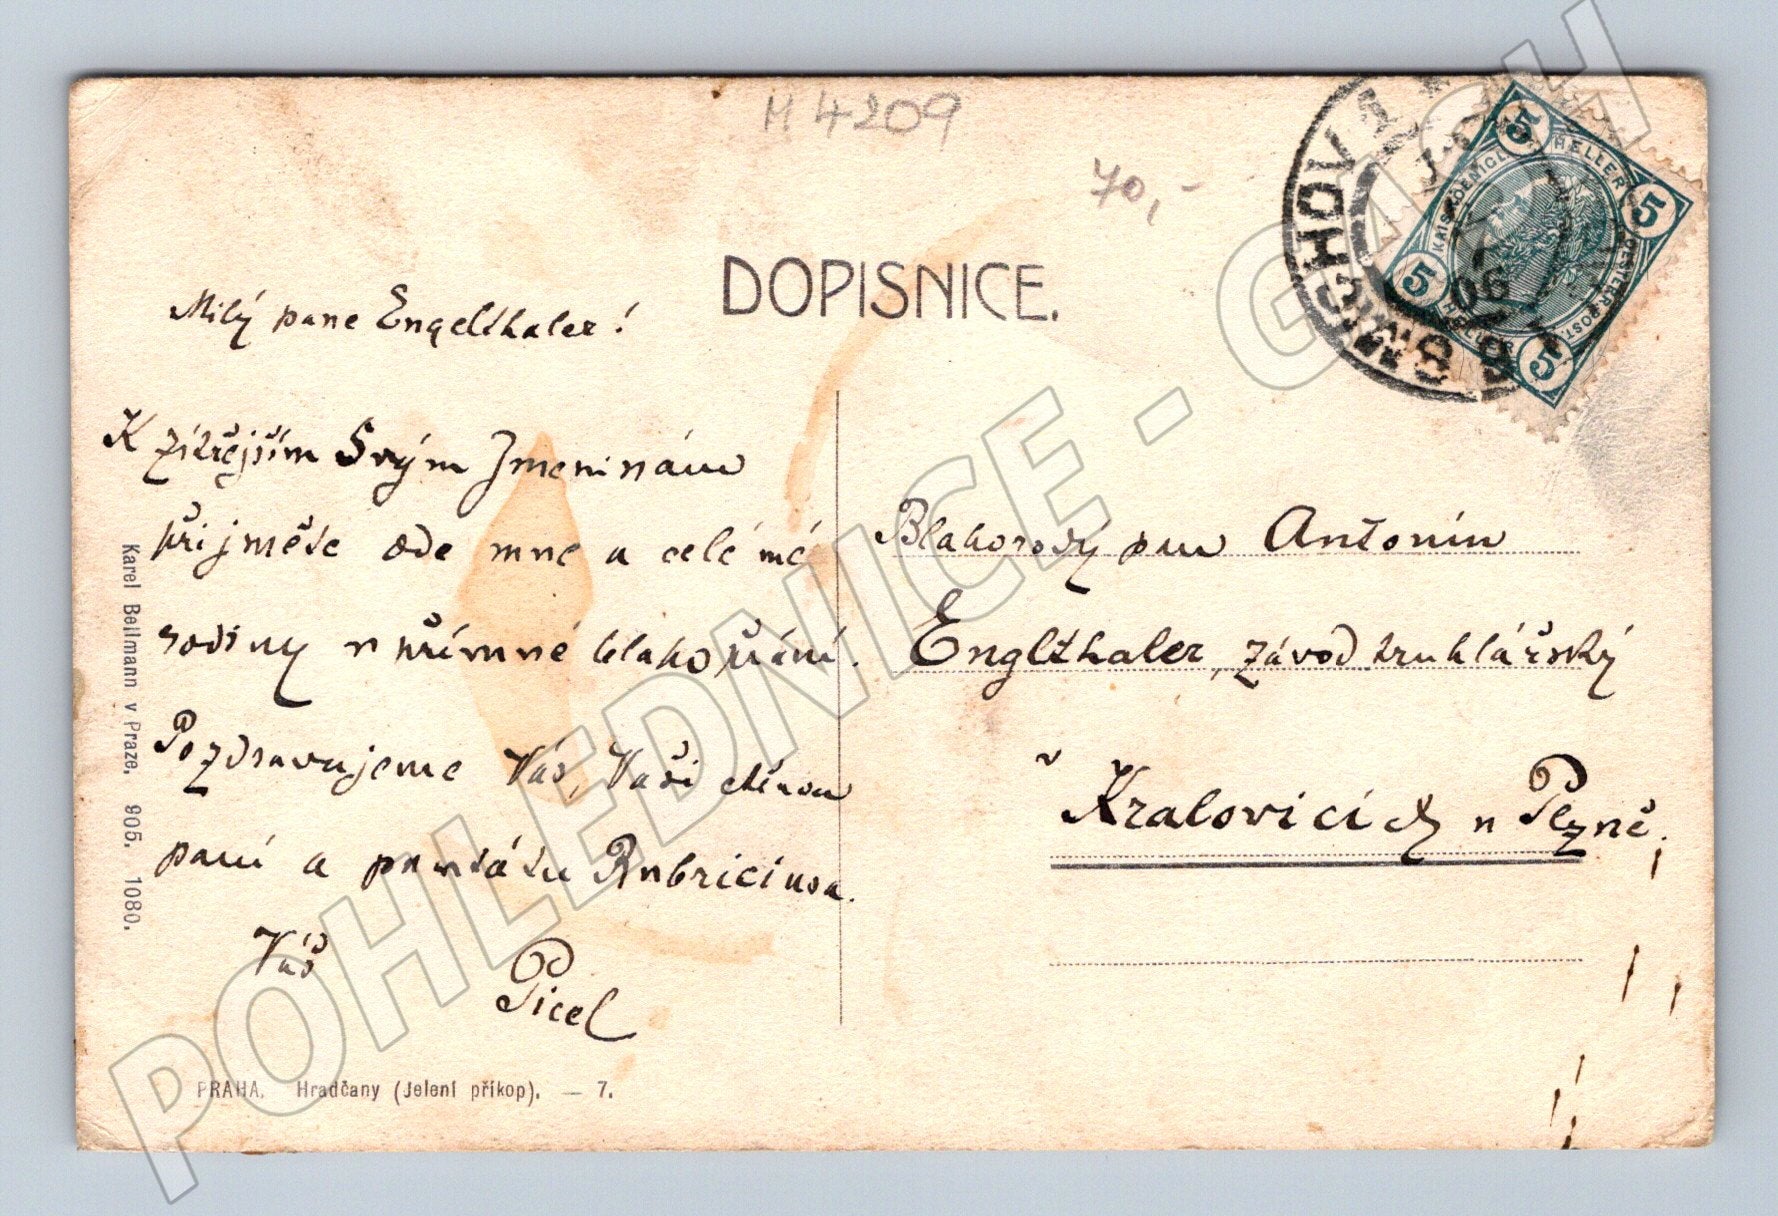 M 4209
70,-
DOPISNICE.
Milý pane Engelthaler!
K zítřejším Svým Jmeninám
přijměte ode mne a celé mé
rodiny upřímné blahopřání.
Pozdravujeme Vás, Vaši ctěnou
paní a pantátu Rubriciusa.
Váš
Picel
Blahorodý pan Antonín
Englthaler, závod truhlářský
v
Kralovicích u Plzně.
Karel Bellmann v Praze. 905. 1080.
PRAHA. Hradčany (Jelení příkop). — 7.
5 HELLER 5
KAISKOENIGL OESTERR.POST.
5 HELLER 5
SMÍCHOV
06
POHLEDNICE - GASH